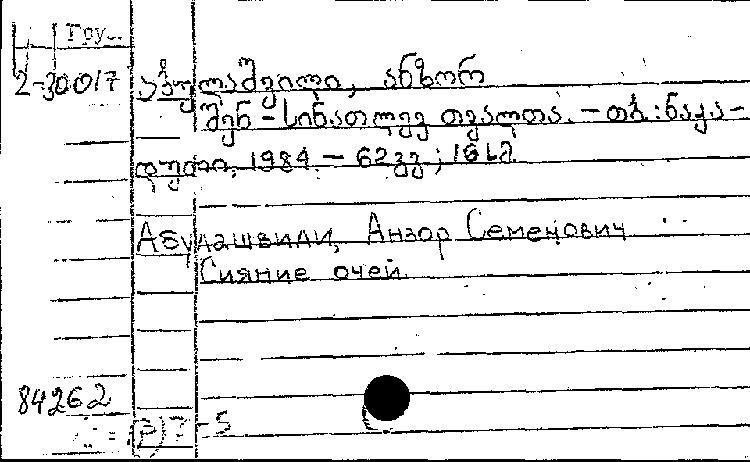 Груз.
2-30017 აბულაშვილი, ანზორ
შენ - სინათლევ თვალთა. - თბ.: ნაკა-
დული, 1984. - 62გვ; 16სმ
Абулашвили, Анзор Семенович
Сияние очей.
84262